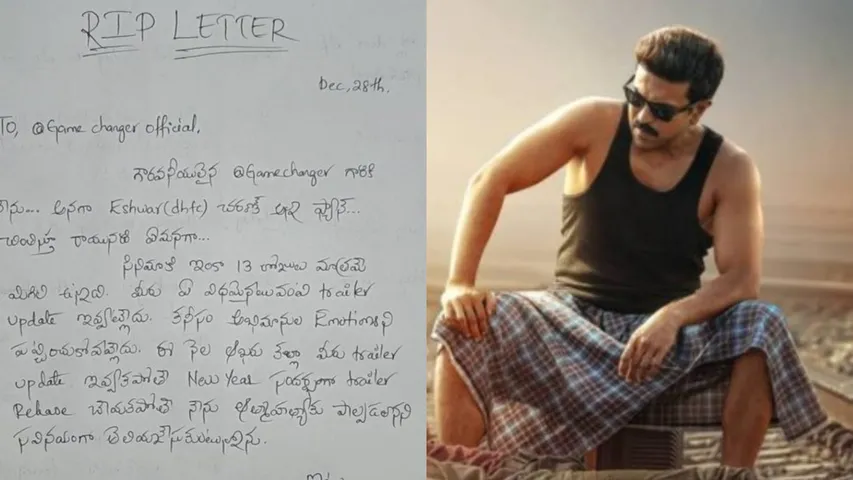 RIP LETTER
Dec, 28th.
TO, @Game changer official,
గౌరవనీయులైన @Gamechanger గారికి
నేను... అనగా Eshwar(dhfc) చరణ్ అన్న ఫ్యాన్...
చింతిస్తూ రాయునది ఏమనగా...
సినిమాకి ఇంకా 13 రోజులు మాత్రమే
మిగిలి ఉన్నది. మీరు ఏ విధమైనటువంటి trailer
update ఇవ్వట్లేదు. కనీసం అభిమానుల Emotionsని
పట్టించుకోవట్లేదు. ఈ నెల ఆఖరు కల్లా మీరు trailer
update ఇవ్వకపోతే New Year సందర్భంగా trailer
Release చేయకపోతే నేను ఆత్మహత్యకు పాల్పడతానని
సవినయంగా తెలియజేసుకుంటున్నాను.